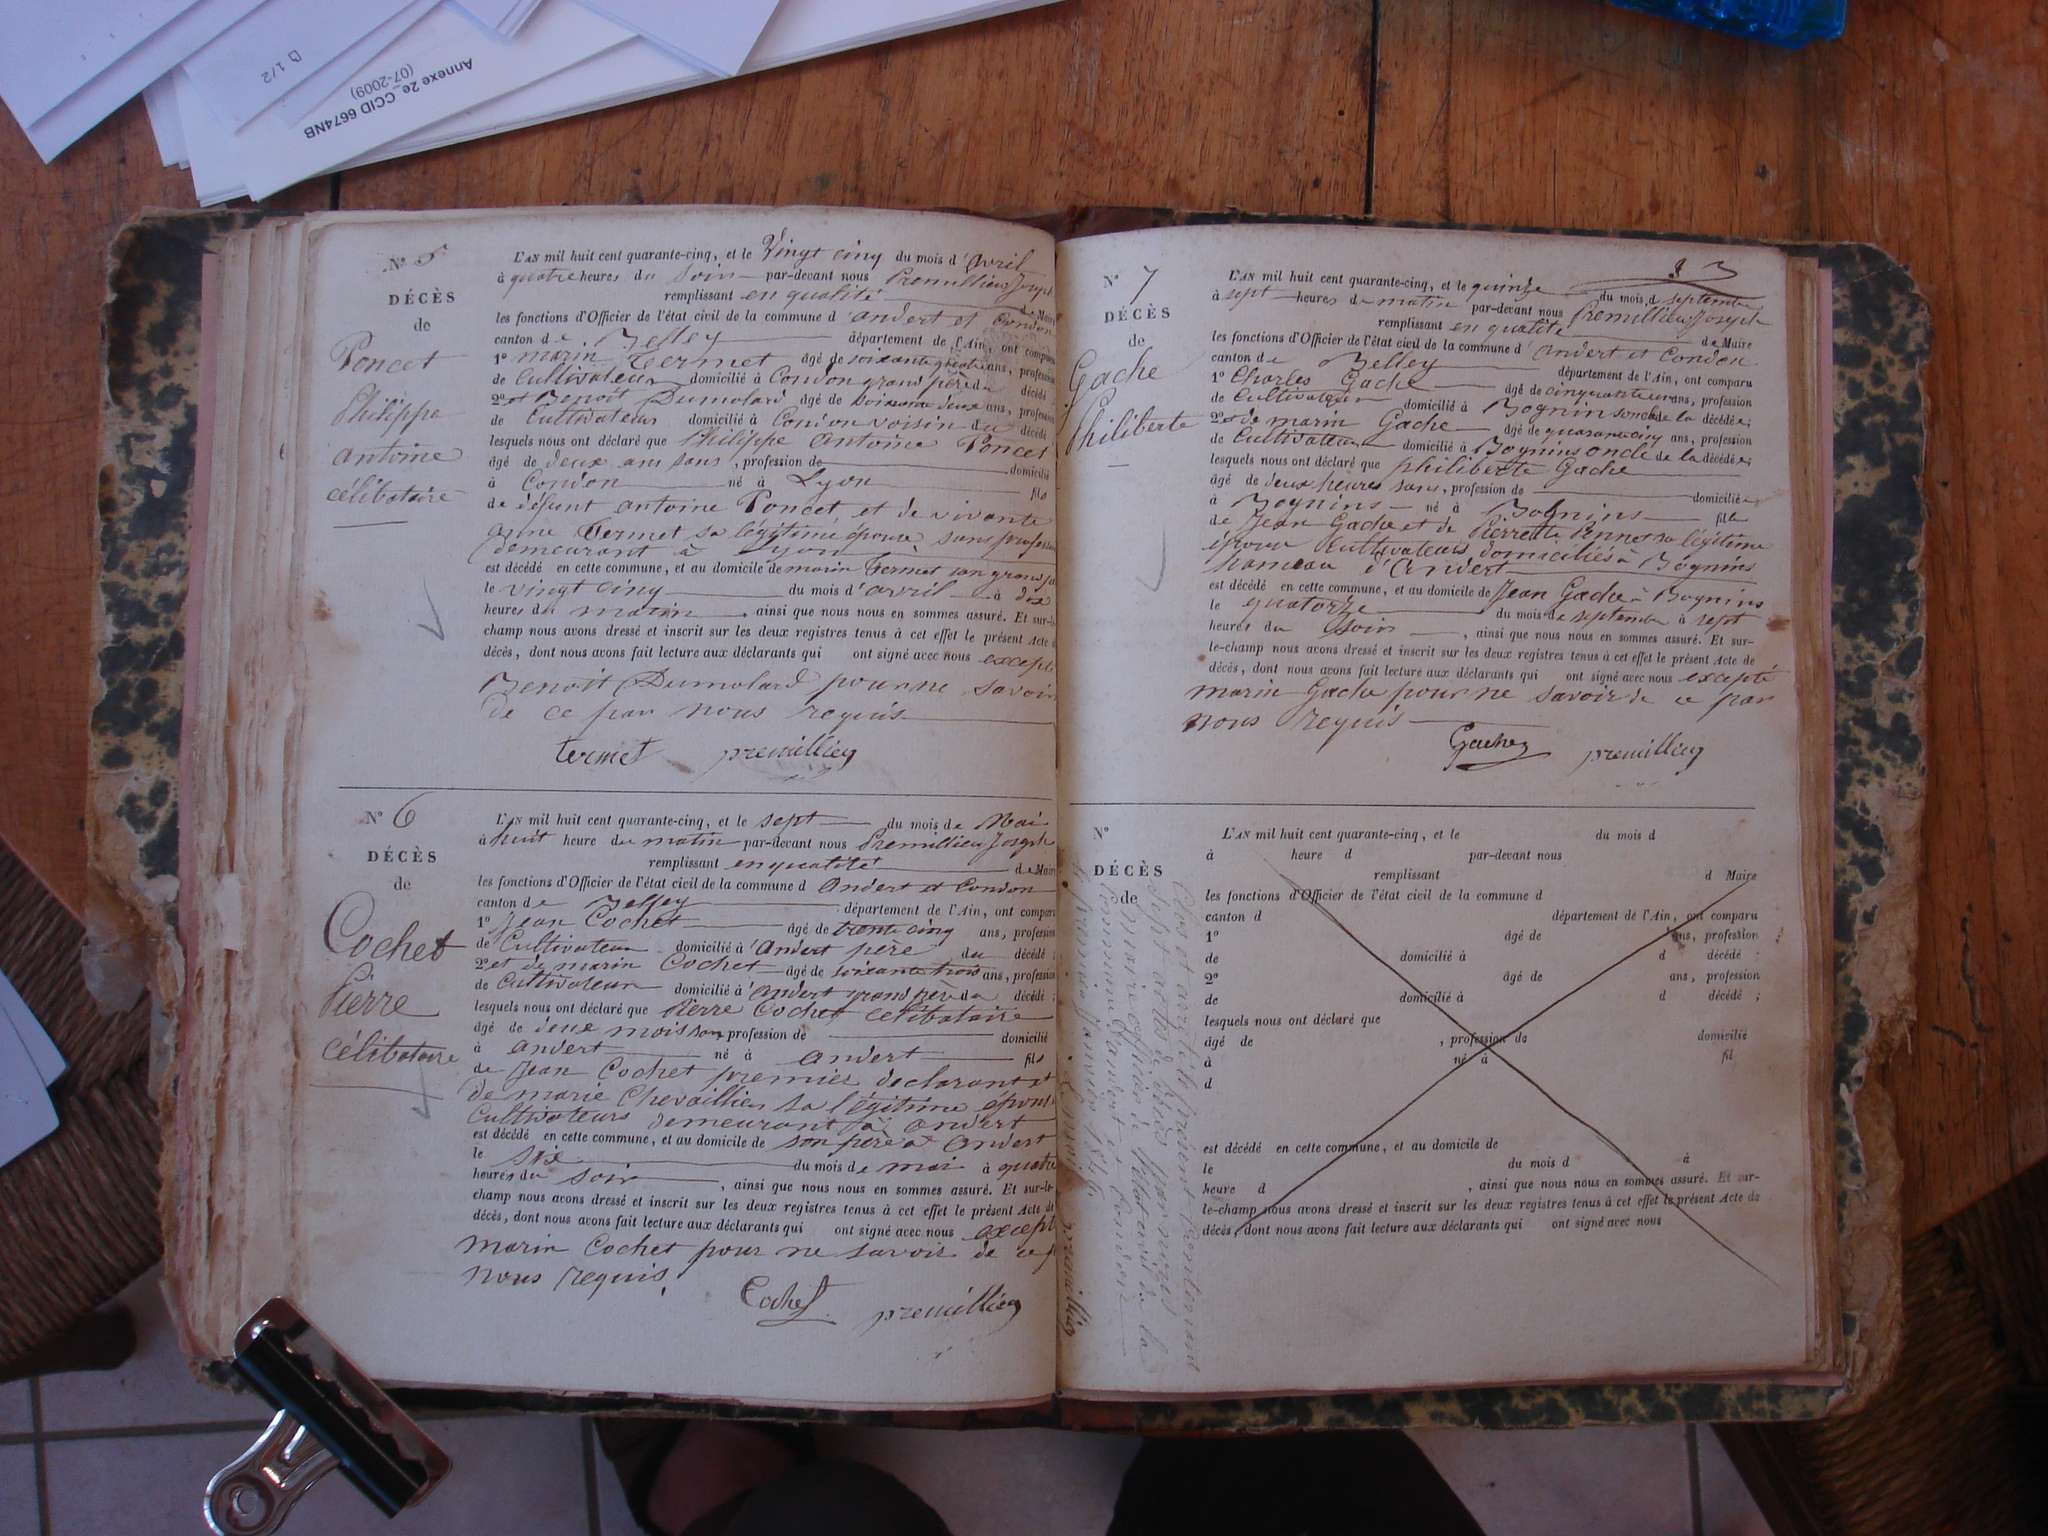 B 1/2
Annexe 2e_CCID 6674NB
(07-2009)
N° 5
DÉCÈS
de
Poncet
Philippe
antoine
célibataire
L'AN mil huit cent quarante-cinq, et le Vingt cinq du mois d'avril
à quatre heures du soir par-devant nous Premillieu Joseph
remplissant en qualité de Maire
les fonctions d'Officier de l'état civil de la commune d'andert et Condon
canton de Belley département de l'Ain, ont comparu
1° marin Termet âgé de soixante quatre ans, profession
de Cultivateur domicilié à Condon grand père du décédé
2° et Benoit Dumolard âgé de soixante deux ans, profession
de Cultivateur domicilié à Condon voisin du décédé
lesquels nous ont déclaré que Philippe antoine Poncet
âgé de deux ans sans, profession de domicilié
à Condon né à Lyon fils
de défunt antoine Poncet et de vivante
anne Termet sa légitime épouse sans profession
demeurant à Lyon
est décédé en cette commune, et au domicile de marin Termet son grand
le vingt cinq du mois d'avril à dix
heures du matin, ainsi que nous nous en sommes assuré. Et sur-le-
champ nous avons dressé et inscrit sur les deux registres tenus à cet effet le présent Acte d
décès, dont nous avons fait lecture aux déclarants qui ont signé avec nous excepté
Benoit Dumolard pour ne savoir
de ce par nous requis
termet premillieu
N° 6
DÉCÈS
de
Cochet
Pierre
célibataire
L'AN mil huit cent quarante-cinq, et le sept du mois de Mai
à huit heure du matin par-devant nous Premillieu Joseph
remplissant en qualité de Maire
les fonctions d'Officier de l'état civil de la commune d Andert et Condon
canton de Belley département de l'Ain, ont comparu
1° Jean Cochet âgé de trente cinq ans, profession
de Cultivateur domicilié à andert père du décédé ;
2° et de marin Cochet âgé de soixante trois ans, profession
de Cultivateur domicilié à andert grand père du décédé ;
lesquels nous ont déclaré que Pierre Cochet célibataire
âgé de deux mois sans profession de domicilié
à andert né à andert fils
de Jean Cochet premier déclarant et
de marie Chevaillier sa légitime épouse
Cultivateurs demeurant à andert
est décédé en cette commune, et au domicile de son père à Andert
le six du mois de mai à quatre
heures du soir, ainsi que nous nous en sommes assuré. Et sur-le-
champ nous avons dressé et inscrit sur les deux registres tenus à cet effet le présent Acte de
décès, dont nous avons fait lecture aux déclarants qui ont signé avec nous except
marin Cochet pour ne savoir de ce p
nous requis.
Cochet premillieu
3
N° 7
DÉCÈS
de
Gache
Philiberte
L'AN mil huit cent quarante-cinq, et le quinze du mois d septembre
à sept heures du matin par-devant nous Premillieu Joseph
remplissant en qualité de Maire
les fonctions d'Officier de l'état civil de la commune d'andert et Condon
canton de Belley département de l'Ain, ont comparu
1° Charles Gache âgé de cinquante un ans, profession
de Cultivateur domicilié à Bognins oncle de la décédée ;
2° et de marin Gache âgé de quarante cinq ans, profession
de Cultivateur domicilié à Bognins oncle de la décédée ;
lesquels nous ont déclaré que philiberte Gache
âgé de deux heures sans, profession de domiciliée
à Bognins né à Bognins fille
de Jean Gache et de Pierrette Pennet sa légitime
épouse Cultivateurs domiciliés à Bognins
hameau d'Andert
est décédé en cette commune, et au domicile de Jean Gache à Bognins
le quatorze du mois de septembre à sept
heures du soir, ainsi que nous nous en sommes assuré. Et sur-
le-champ nous avons dressé et inscrit sur les deux registres tenus à cet effet le présent Acte de
décès, dont nous avons fait lecture aux déclarants qui ont signé avec nous excepté
marin Gache pour ne savoir de ce par
nous requis
Gache premillieu
N°
DÉCÈS
de
L'AN mil huit cent quarante-cinq, et le du mois d
à heure d par-devant nous
remplissant d Maire
les fonctions d'Officier de l'état civil de la commune d
canton d département de l'Ain, ont comparu
1° âgé de ans, profession
de domicilié à d décédé ;
2° âgé de ans, profession
de domicilié à d décédé ;
lesquels nous ont déclaré que
âgé de , profession de domicilié
à né à fil
d
est décédé en cette commune, et au domicile de
le du mois d à
heure d , ainsi que nous nous en sommes assuré. Et sur-
le-champ nous avons dressé et inscrit sur les deux registres tenus à cet effet le présent Acte de
décès, dont nous avons fait lecture aux déclarants qui ont signé avec nous
Clos et arrêté le présent contenant
sept actes de décès par nous
maire officier de l'état civil de la
Commune d'andert et Condon
le premier Janvier 1846
premillieu